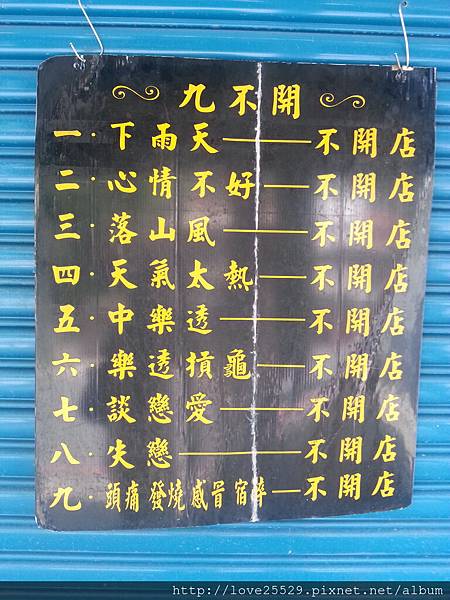 九不開
一·下雨天——不開店
二·心情不好——不開店
三·落山風——不開店
四·天氣太熱——不開店
五·中樂透——不開店
六·樂透摃龜——不開店
七·談戀愛——不開店
八·失戀——不開店
九·頭痛發燒感冒宿醉—不開店
http://love25529.pixnet.net/album